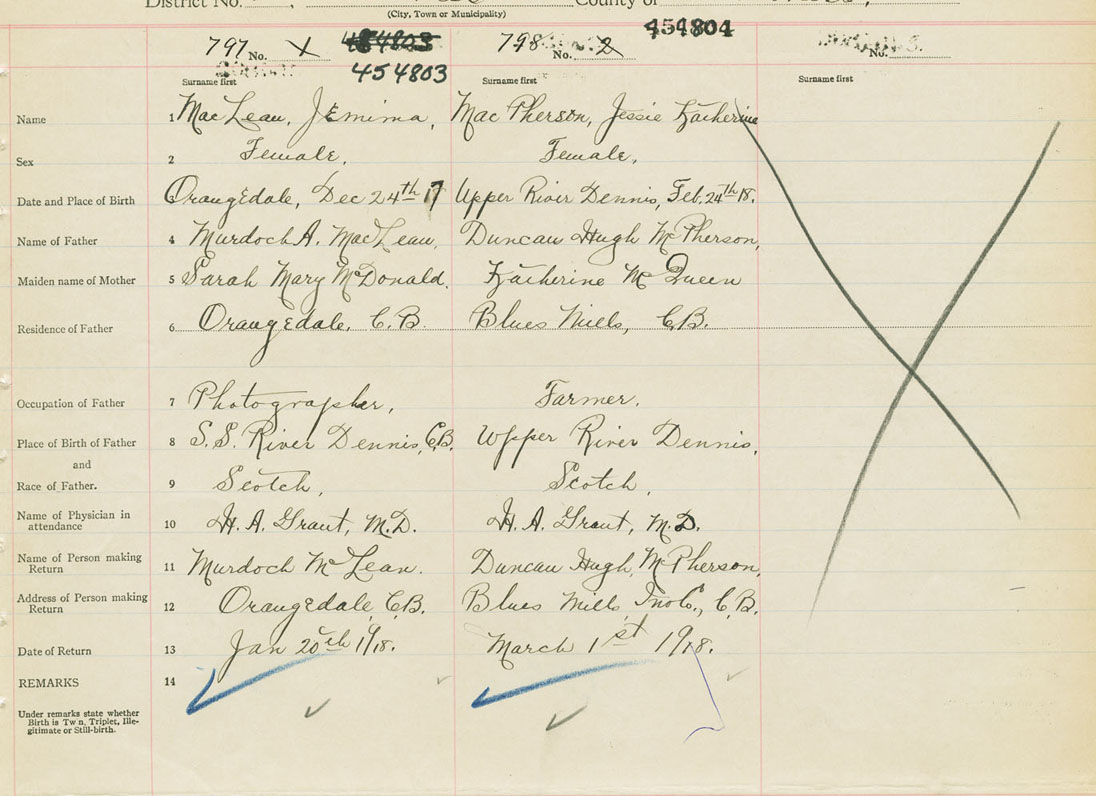 District No. County of
(City, Town or Municipality)
797 No. 1 454803 798 No. 2 454804 No.
454803
Surname first Surname first Surname first
Name 1 MacLean, Jemima, MacPherson, Jessie Katherine
Sex 2 Female, Female,
Date and Place of Birth 3 Orangedale, Dec 24th 17 Upper River Dennis, Feb. 24th 18.
Name of Father 4 Murdoch A. MacLean, Duncan Hugh McPherson,
Maiden name of Mother 5 Sarah Mary McDonald. Katherine McQueen
Residence of Father 6 Orangedale, C.B. Blues Mills, C.B.
Occupation of Father 7 Photographer, Farmer,
Place of Birth of Father 8 S.S. River Dennis, C.B. Upper River Dennis,
and
Race of Father. 9 Scotch, Scotch,
Name of Physician in attendance 10 H. A. Grant, M.D. H. A. Grant, M.D.
Name of Person making Return 11 Murdoch McLean. Duncan Hugh McPherson,
Address of Person making Return 12 Orangedale C.B. Blues Mills Inv. Co., C.B.
Date of Return 13 Jan 20th 1918. March 1st 1918.
REMARKS 14
Under remarks state whether
Birth is Twin, Triplet, Ille-
gitimate or Still-birth.